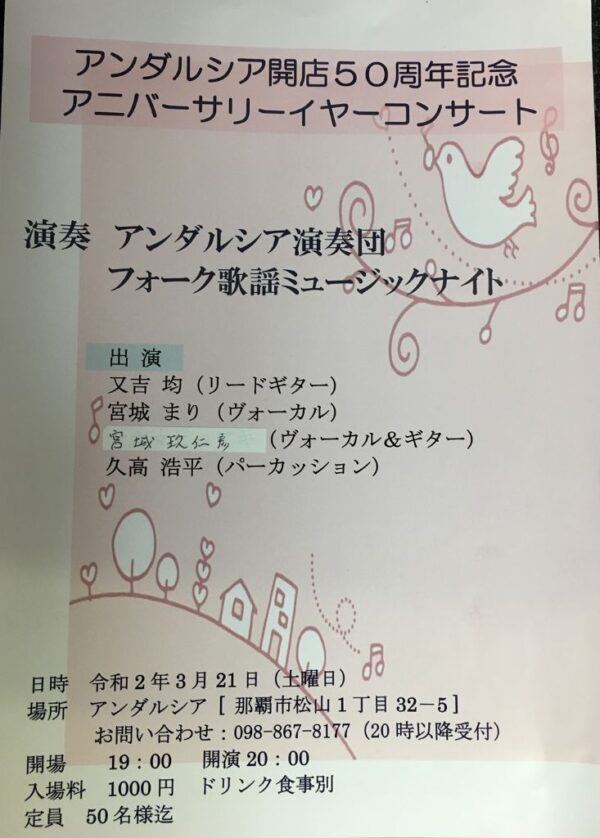 アンダルシア開店５０周年記念
アニバーサリーイヤーコンサート
演奏 アンダルシア演奏団
フォーク歌謡ミュージックナイト
出 演
又吉 均（リードギター）
宮城 まり（ヴォーカル）
宮城 玖仁彦（ヴォーカル＆ギター）
久高 浩平（パーカッション）
日時 令和２年３月21日（土曜日）
場所 アンダルシア［ 那覇市松山１丁目32－5］
お問い合わせ：098-867-8177（20時以降受付）
開場 19：00 開演20：00
入場料 1000円 ドリンク食事別
定員 50名様迄